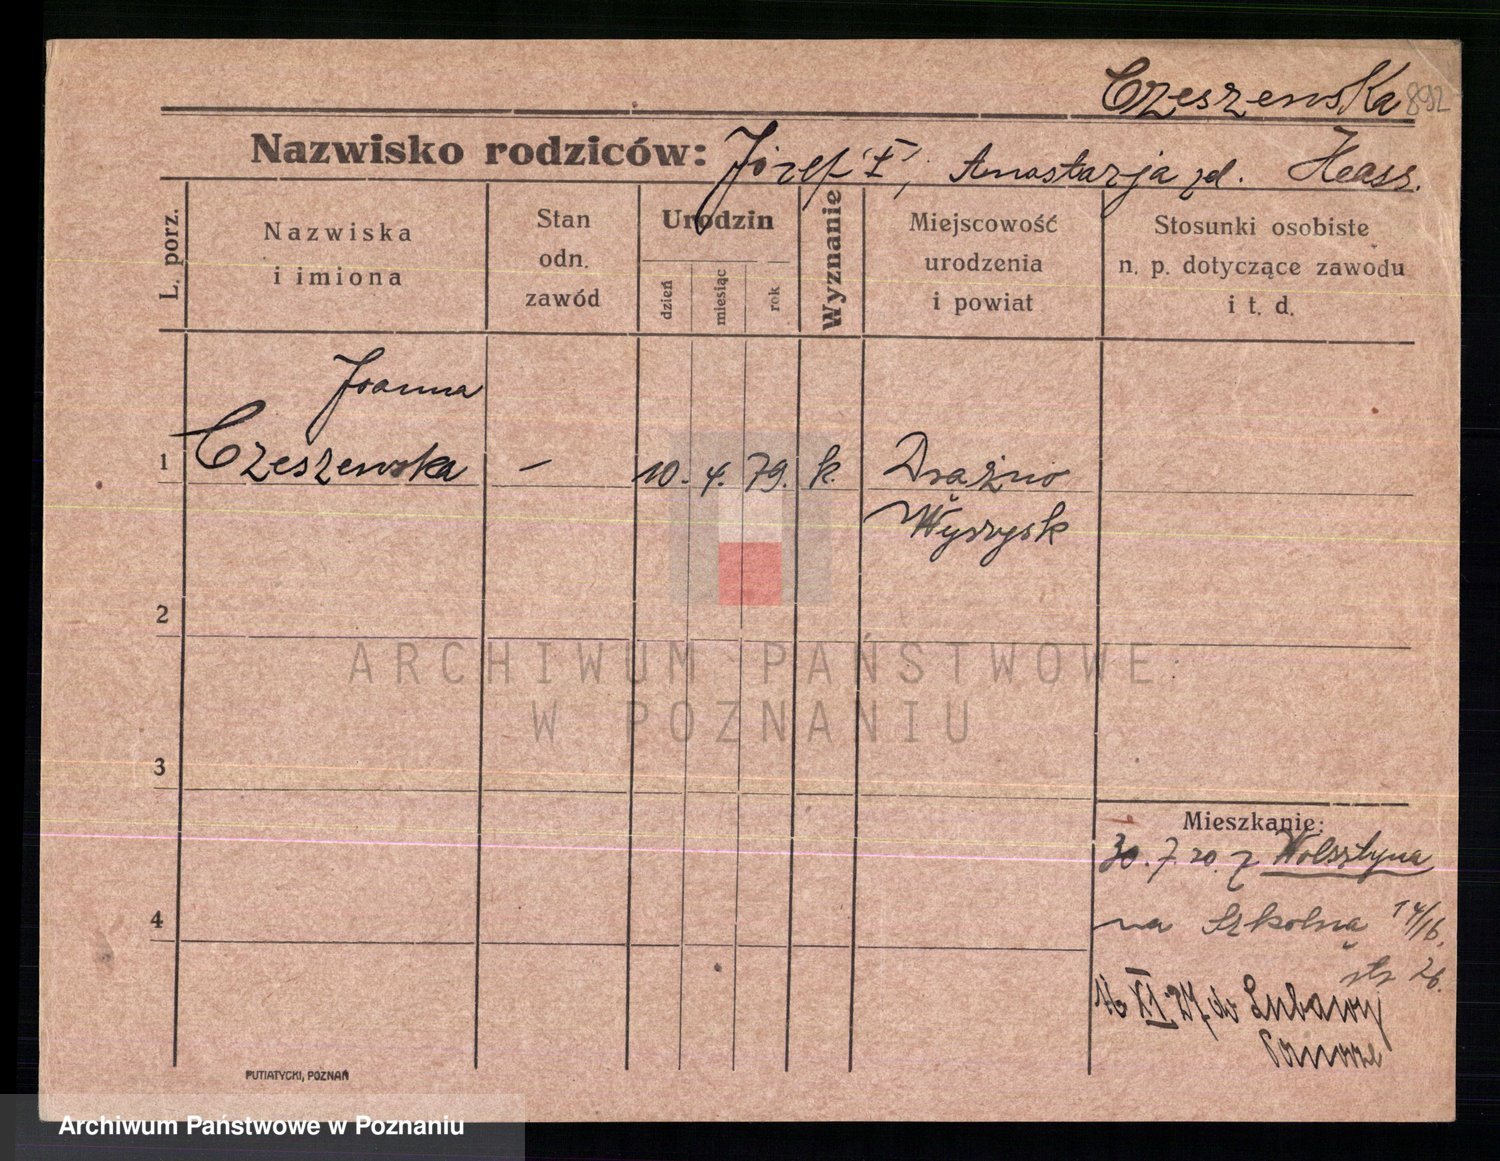 Czeszewska 892
Nazwisko rodziców: Józef "†", Anastazja zd. Haass.
L. porz.
Nazwiska
i imiona
Stan
odn.
zawód
Urodzin
dzień
miesiąc
rok
Wyznanie
Miejscowość
urodzenia
i powiat
Stosunki osobiste
n. p. dotyczące zawodu
i t. d.
Joanna
1 Czeszewska — 10. 4. 79. k. Draźno
Wyrzysk
2
ARCHIWUM PAŃSTWOWE
W POZNANIU
3
Mieszkanie:
30. 7. 20. z Wolsztyna
4
na Szkolna 14/16.
str 26.
16 XI 27 do Lubawy
PUTIATYCKI, POZNAŃ
Archiwum Państwowe w Poznaniu